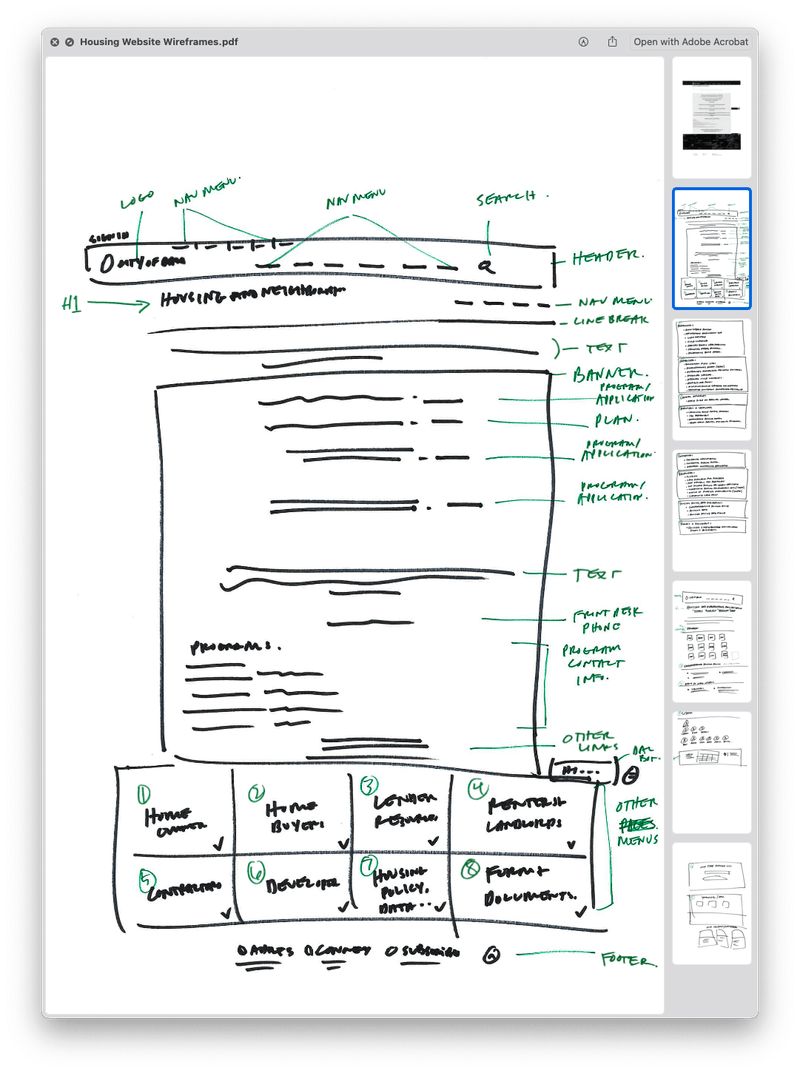 Housing Website Wireframes.pdf
Open with Adobe Acrobat
LOGO
NAV MENU.
NAV MENU
SEARCH.
SIGN IN
CITY OF
HEADER.
H1
HOUSING AND NEIGHBORHOOD
NAV MENU
LINE BREAK
TEXT
BANNER.
PROGRAM/
APPLICATION
PLAN.
PROGRAM/
APPLICATION.
PROGRAM/
APPLICATION.
TEXT
FRONT DESK
PHONE
PROGRAMS.
PROGRAM
CONTACT
INFO.
OTHER
LINKS
① HOME
OWNER
② HOME
BUYERS
③ LENDER
RESOURCES
④ RENTERS &
LANDLORDS
OTHER
PAGES
MENUS
⑤ CONTRACTORS
⑥ DEVELOPER
⑦ HOUSING
POLICY,
DATA...
⑧ FORMS &
DOCUMENTS.
ADDRESS
CONNECT
SUBSCRIBE
FOOTER